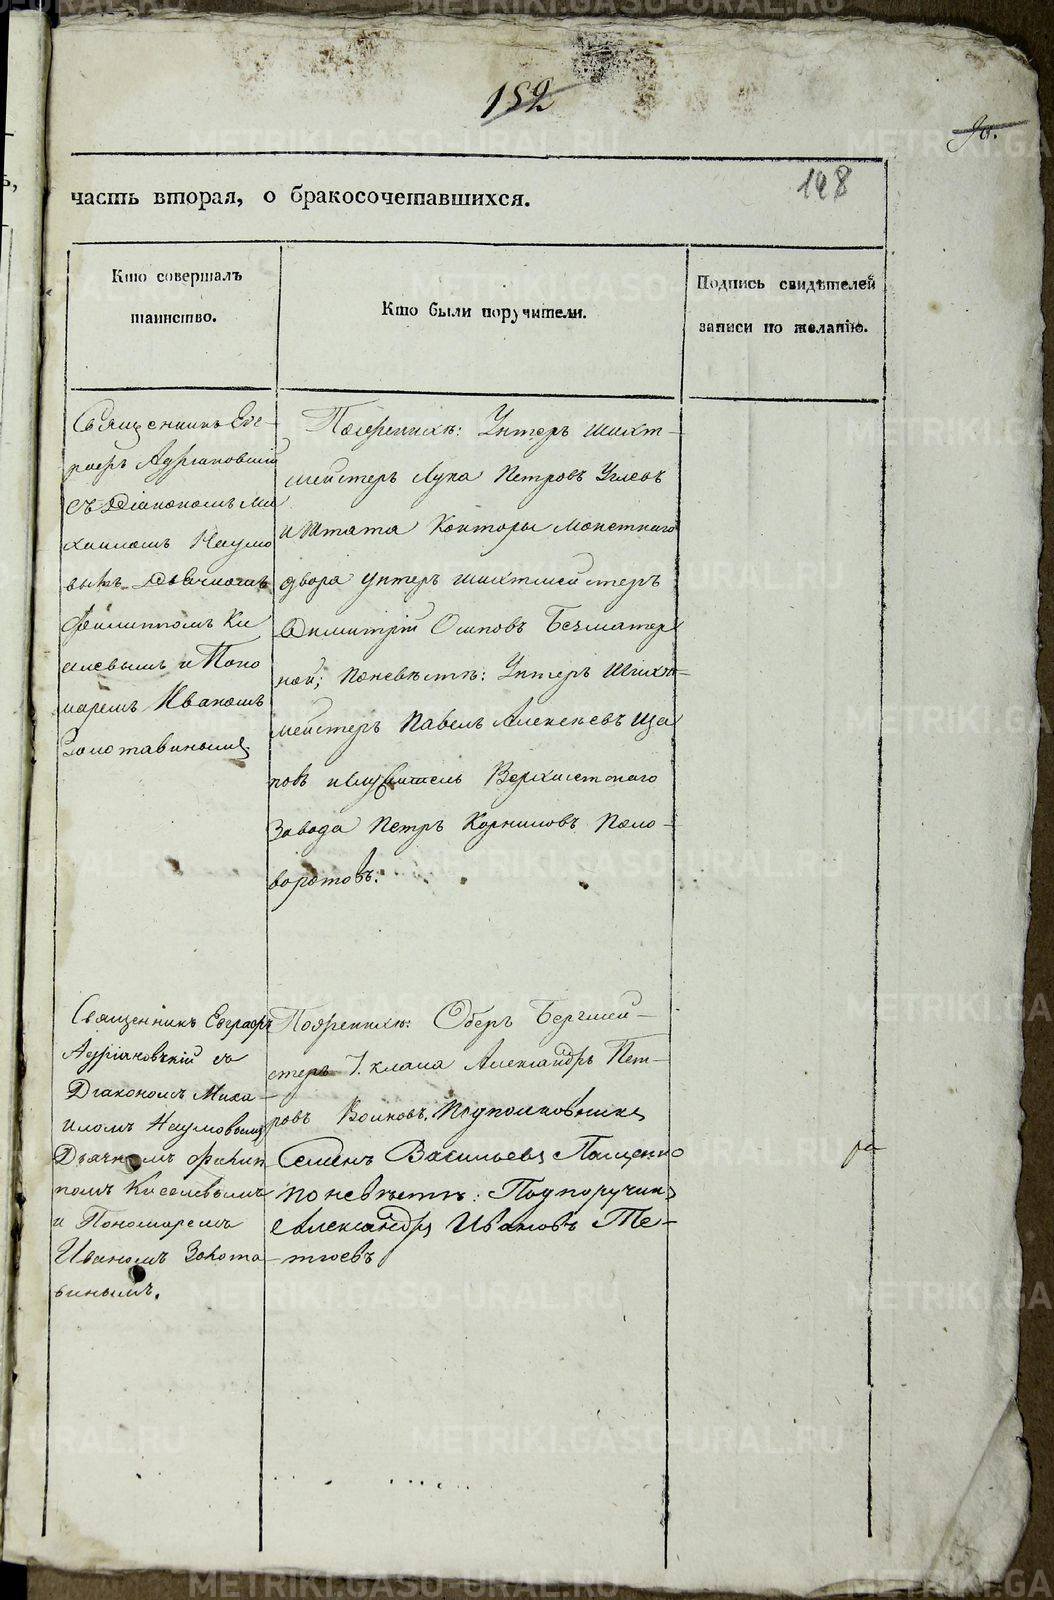 152
90.
148
часть вторая, о бракосочетавшихся.
Кто совершалъ
таинство.
Кто были поручители.
Подпись свидѣтелей
записи по желанію.
Священникъ Ев-
графъ Адріановскій
съ Діакономъ Ми
хаиломъ Наумо
вымъ Дьячкомъ
Филиппомъ Ки
селевымъ и Поно
маремъ Иваномъ
Золотавинымъ
Пожених<ѣ>: Унтеръ шихт-
мейстеръ Лука Петровъ Углевъ
и штата Конторы Монетнаго
двора унтеръ шихтмейстеръ
Димитрій Осиповъ Безматер
ной; поневѣстѣ: Унтеръ Шихт-
мейстеръ Павелъ Алексѣевъ Ща
повъ и служитель Верхисетскаго
Завода Петръ Корниловъ Поло-
воротовъ.
Священникъ Евграфъ
Адріановскій съ
Діакономъ Миха-
иломъ Наумовымъ
Дьячкомъ Филип
помъ Киселевымъ
и Пономаремъ
Иваномъ Золота-
винымъ.
Поженихѣ: Оберъ Бергмей-
стеръ 7. класа Александръ Пет-
ровъ Волковъ, Подполковникъ
Семенъ Васильевъ Пащенко
поневѣстѣ: Подпоручикъ
Александръ Ивановъ Те-
тюевъ
METRIKI.GASO-URAL.RU